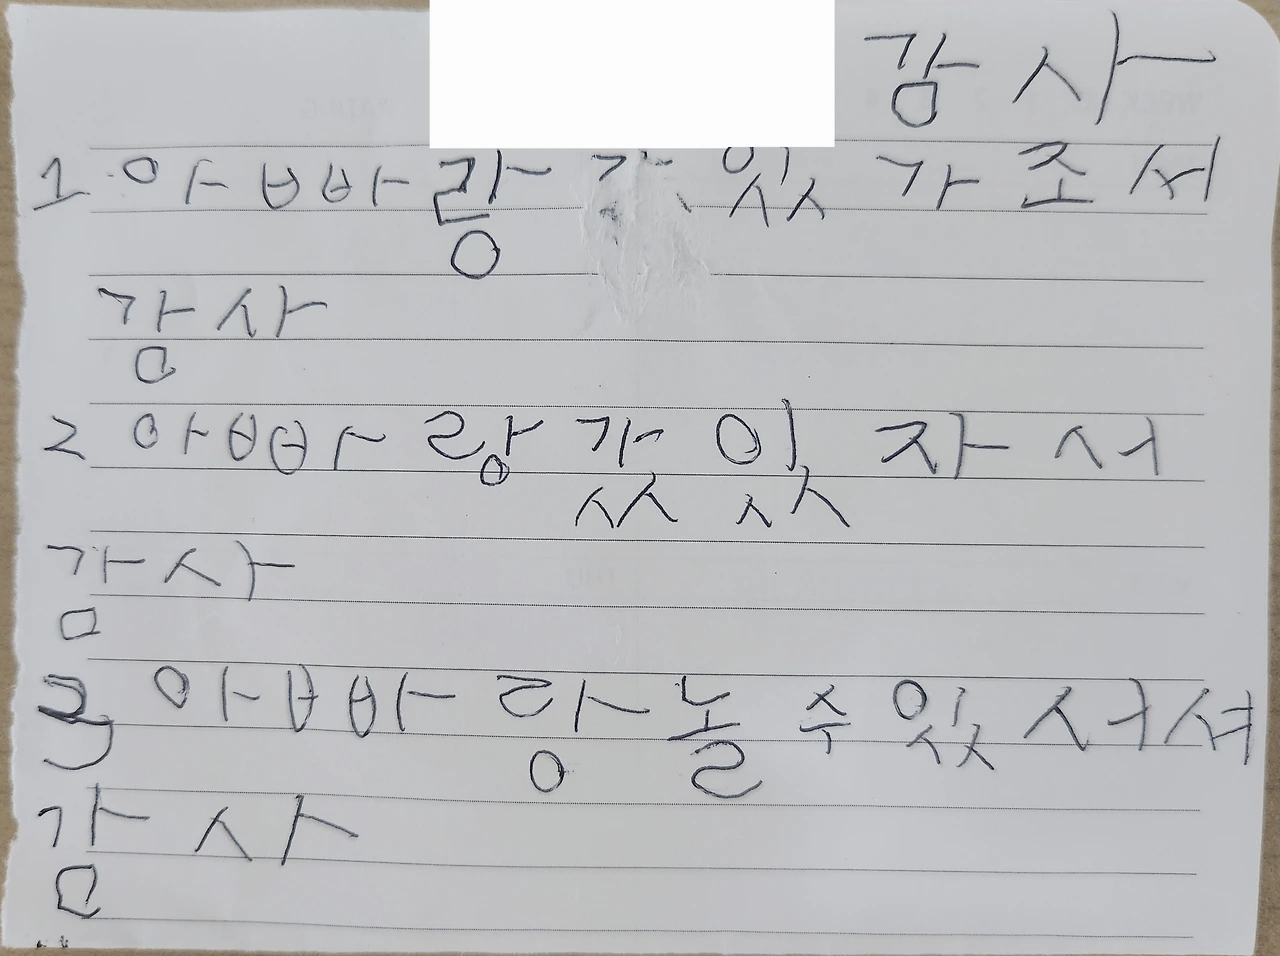 감사
1 아빠랑 있 가조서
감사
2 아빠랑 갔잇 자서
감사
3 아빠랑 놀 수 있서셔
감사